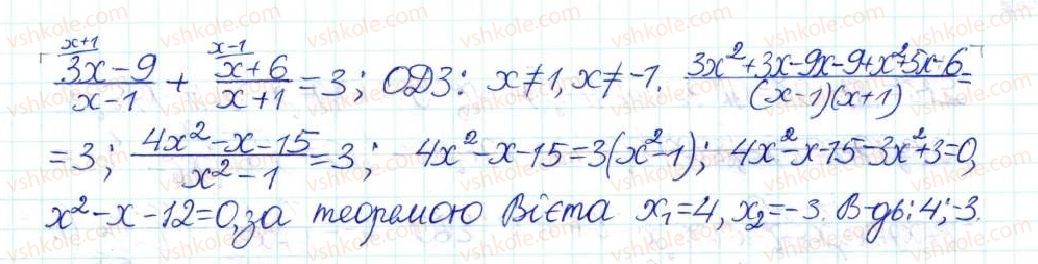 (3x-9)/(x-1) + (x+6)/(x+1) = 3; ОДЗ: x≠1, x≠-1. (3x²+3x-9x-9+x²+5x-6)/((x-1)(x+1)) =
= 3; (4x²-x-15)/(x²-1) = 3; 4x²-x-15=3(x²-1); 4x²-x-15-3x²+3=0,
x²-x-12=0, за теоремою Вієта x₁=4, x₂=-3. В-дь: 4; -3.